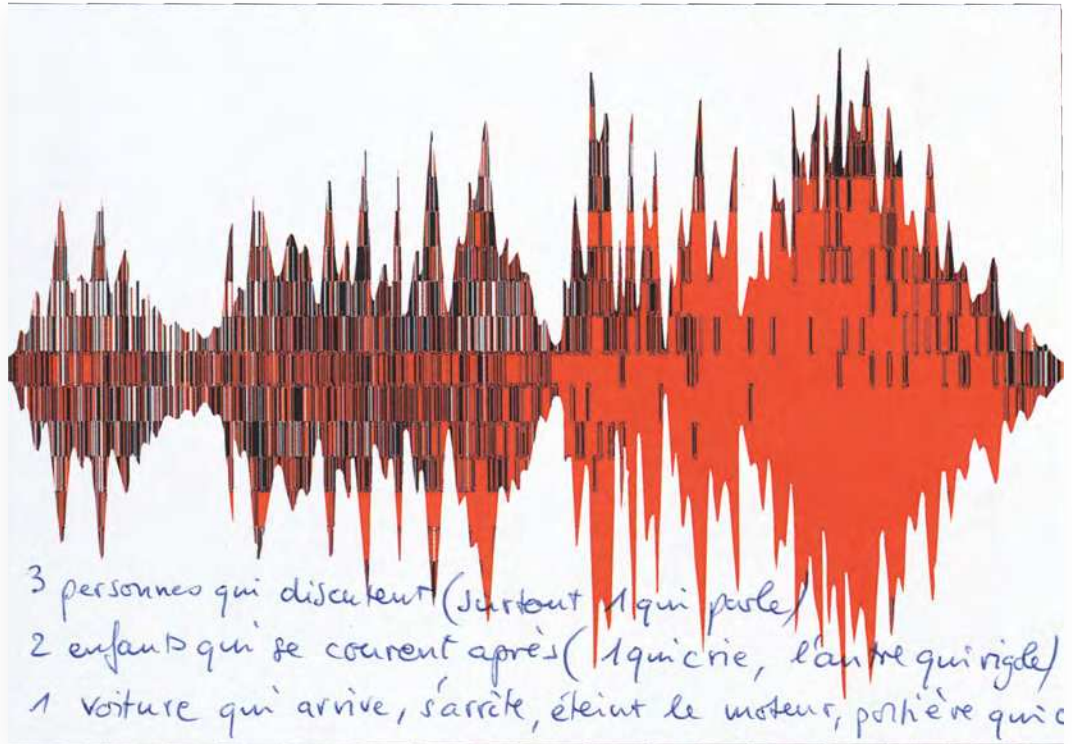 3 personnes qui discutent (surtout 1 qui parle)
2 enfants qui se courent après (1 qui crie, l'autre qui rigole)
1 voiture qui arrive, s'arrête, éteint le moteur, portière qui c